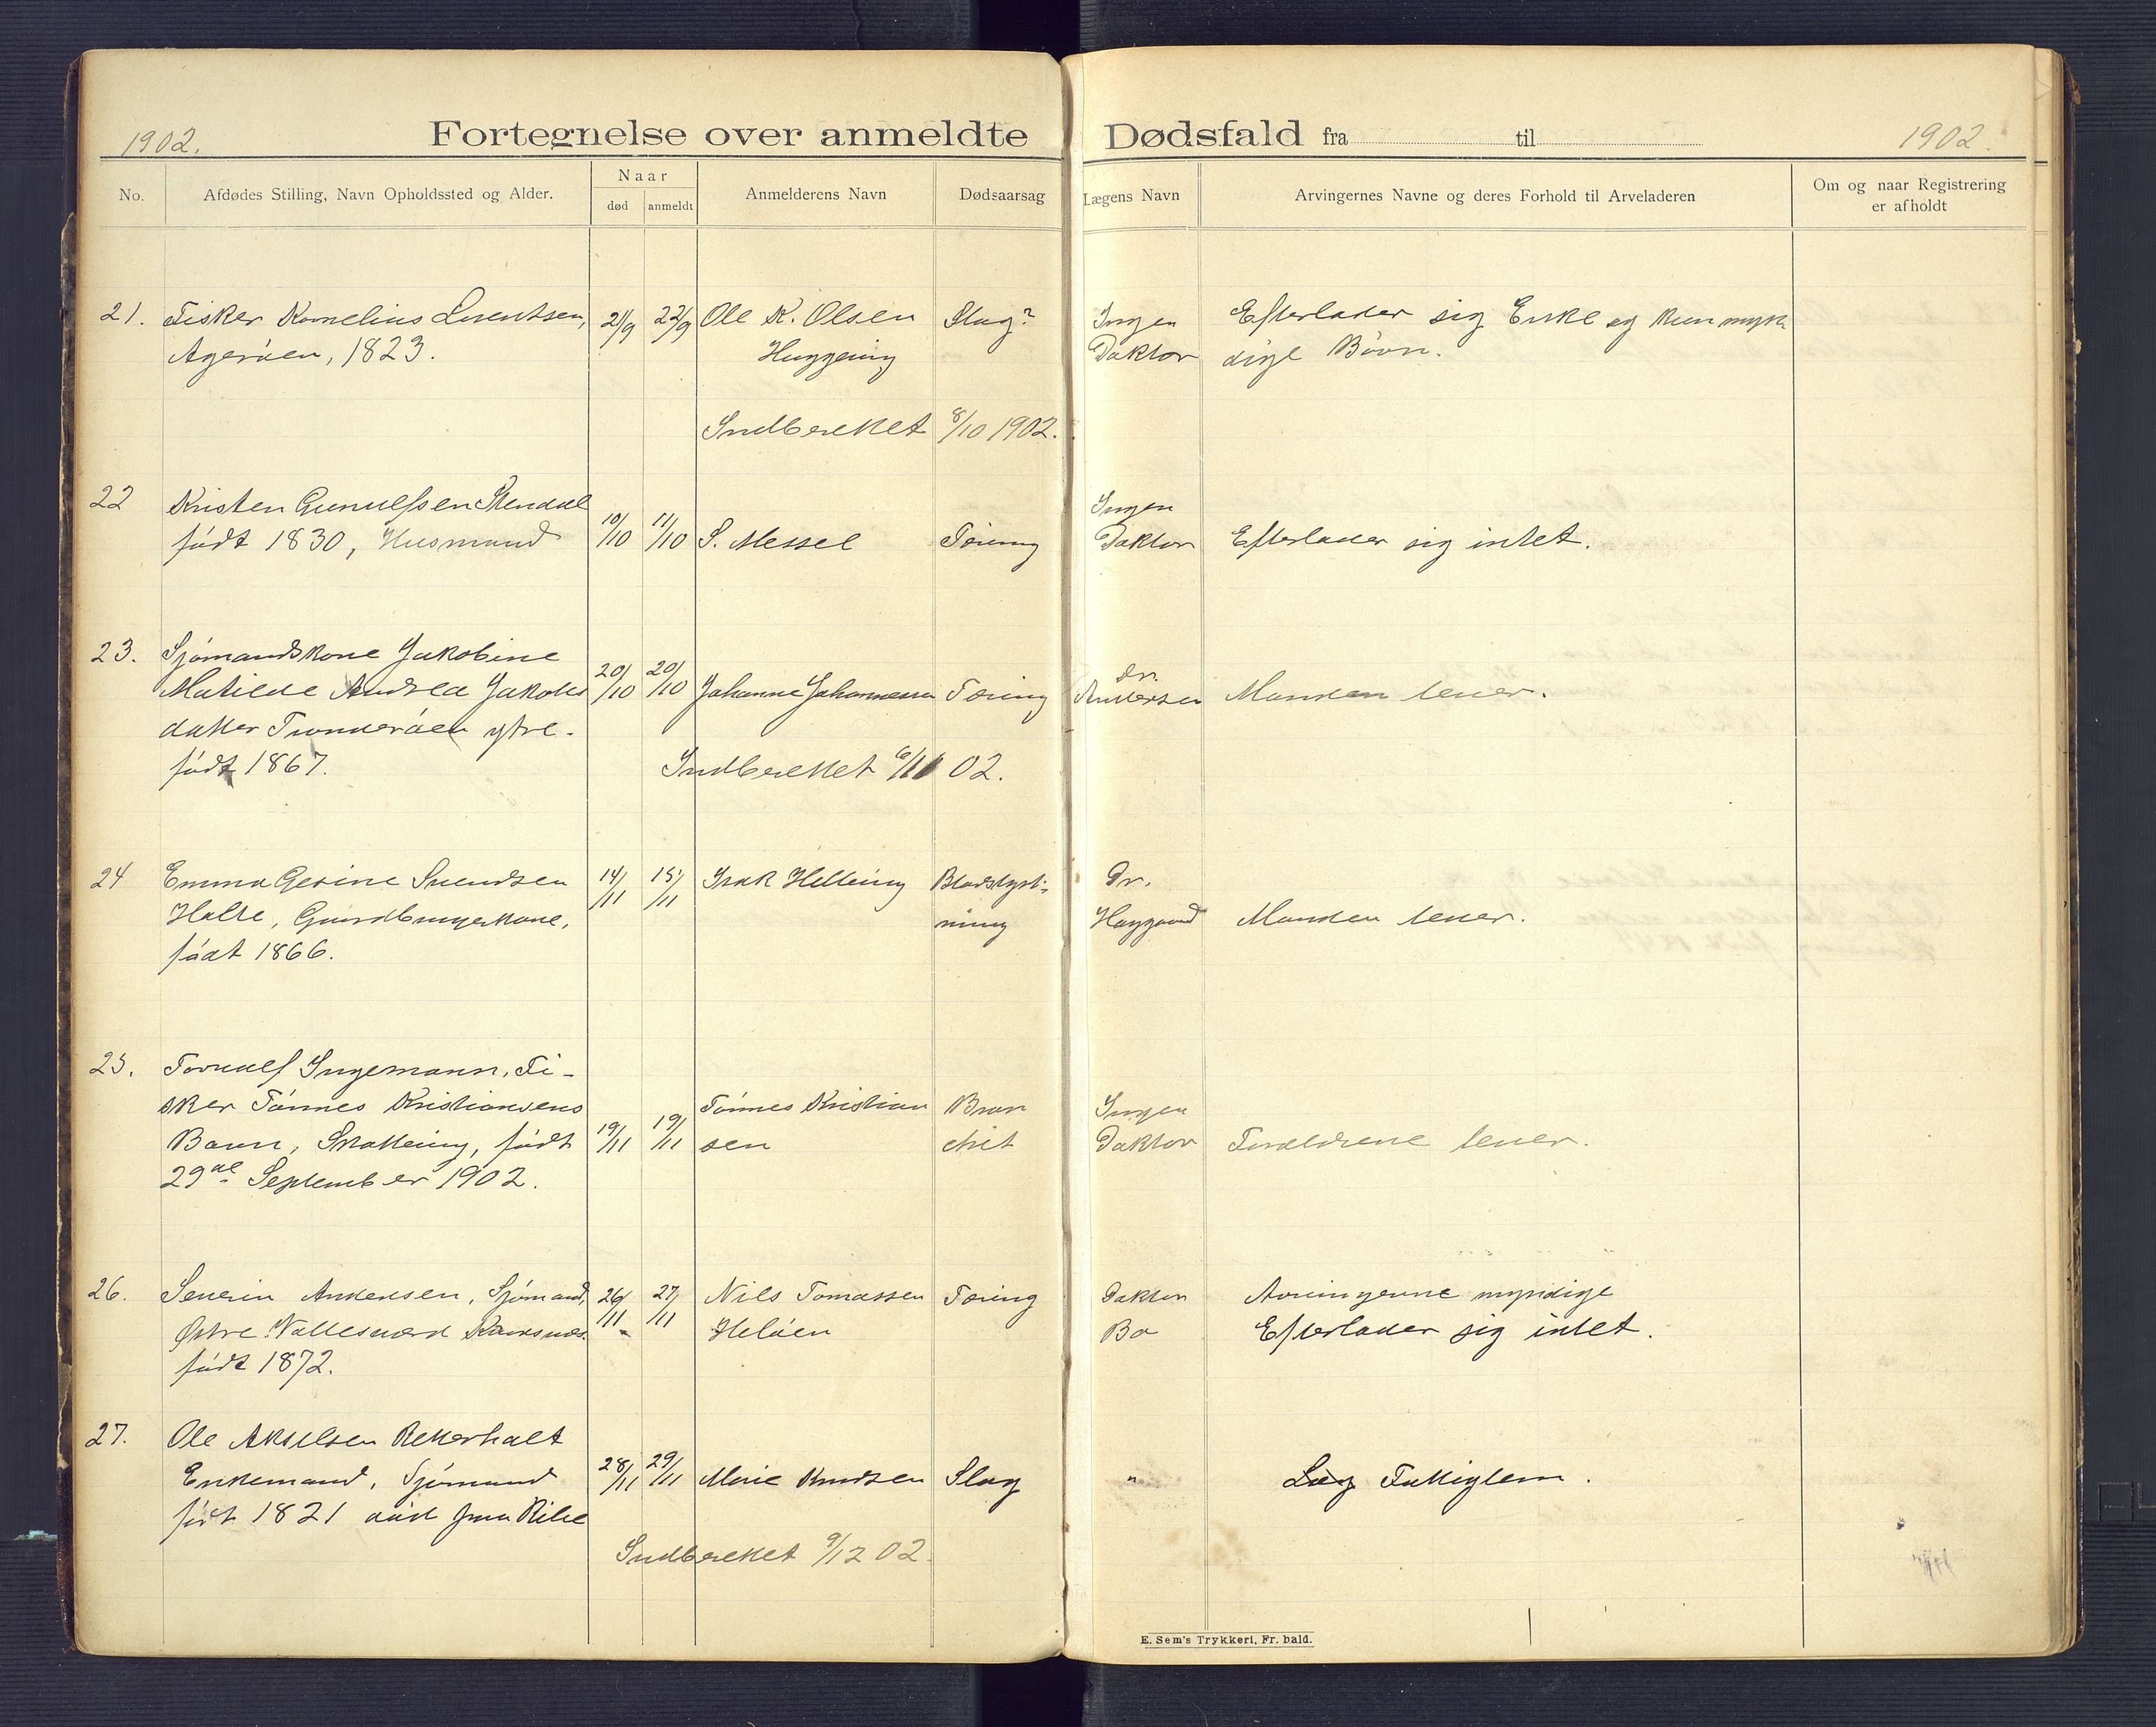 1902.
Fortegnelse over anmeldte Dødsfald fra til
1902.
No.
Afdødes Stilling, Navn Opholdssted og Alder.
Naar
død
anmeldt
Anmelderens Navn
Dødsaarsag
Lægens Navn
Arvingernes Navne og deres Forhold til Arveladeren
Om og naar Registrering
er afholdt
21. Fisker Kornelius Lorentsen, 21/9 22/9 Ole K. Olsen Slag? Ingen Efterlader sig Enke og kun myn-
Agerøen, 1823. Doktor dige Børn.
Indberettet 8/10 1902.
22 Kristen Gunulfsen Stendal Ingen
født 1830, Husmand 10/10 11/10 S. Messel Tæring Doktor Efterlader sig intet.
23. Sjømandskone Jakobine Dr.
Matilde Andrea Jakobs 20/10 20/10 Johanne Johannessen Tæring Andersen Manden lever.
datter Tronderøen ytre.
født 1867. Indberettet 6/11 02.
24 Emma Gesine Svendsen 14/11 15/11 Isak Helleing Blodstyrt- Dr.
Holte, Gaardbrugerkone, ning Manden lever.
født 1866.
25. Torvalf Ingemann, Fi-
sker Tønnes Kristiansens Tønnes Kristian Bron Ingen
Barn, født 19/11 19/11 sen chit Doktor Forældrene lever.
29de September 1902.
26. Severin Andersen, Sjømand, 26/11 27/11 Nils Tomassen Tæring Doktor Arvingerne myndige
Østre Vallesværd Bo Efterlader sig intet.
født 1872.
27. Ole Akselsen
Enkemand, Sjømand 28/11 29/11 Marie Knudsen Slag " Læg Fattiglem.
født 1821
Indberettet 9/12 02.
E. Sem's Trykkeri, Fr. hald.